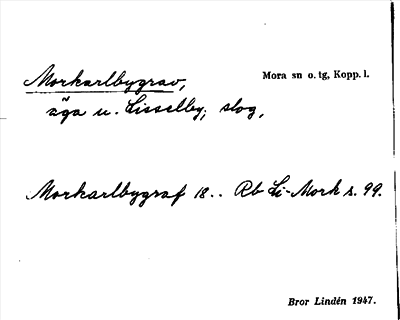 Morkarlbygrav,
Mora sn o. tg, Kopp. l.
äga u. Lisselby; slog,
Morkarlbygraf 18.. Rb Li-Mork s. 99.
Bror Lindén 1947.